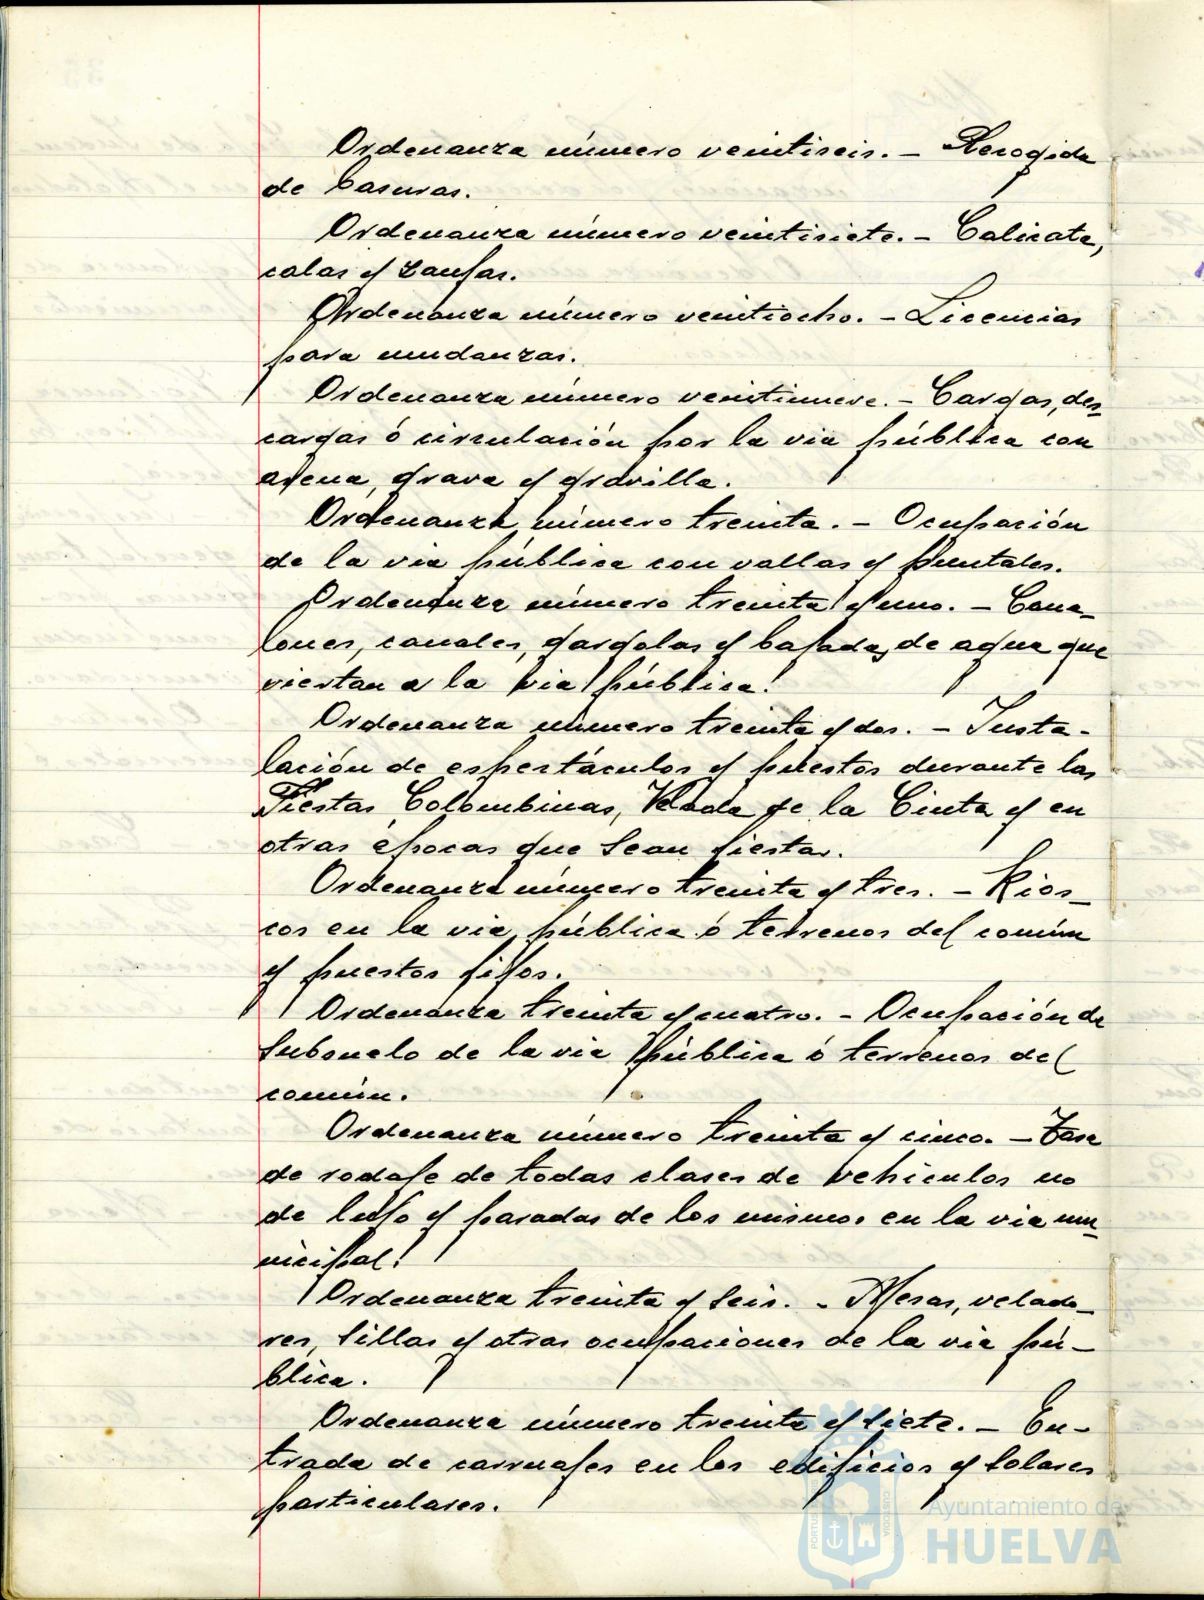 Ordenanza número veintiseis. – Recogida
de basuras.
Ordenanza número veintisiete. – Calicata,
calas y zanjas.
Ordenanza número veintiocho. – Licencias
para mudanzas.
Ordenanza número veintinueve. – Cargas, des-
cargas ó circulación por la via pública con
arena, grava y gravilla.
Ordenanza número treinta. – Ocupación
de la via pública con vallas y puntales.
Ordenanza número treinta y uno. – Cana-
lones, canales, gargolas y bajadas de agua que
viertan a la via pública.
Ordenanza número treinta y dos. – Insta-
lación de espectáculos y puestos durante las
Fiestas Colombinas, Velada de la Cinta y en
otras épocas que sean fiestas.
Ordenanza número treinta y tres. – Kios-
cos en la via pública ó terrenos del común
y puestos fijos.
Ordenanza treinta y cuatro. – Ocupación de
subsuelo de la via pública ó terrenos del
común.
Ordenanza número treinta y cinco. – Tasa
de rodaje de todas clases de vehiculos no
de lujo y paradas de los mismos en la via mu-
nicipal.
Ordenanza treinta y seis. – Mesas, velado-
res, sillas y otras ocupaciones de la via pú-
blica.
Ordenanza número treinta y siete. – En-
trada de carruajes en los edificios y solares
particulares.
Ayuntamiento de
HUELVA